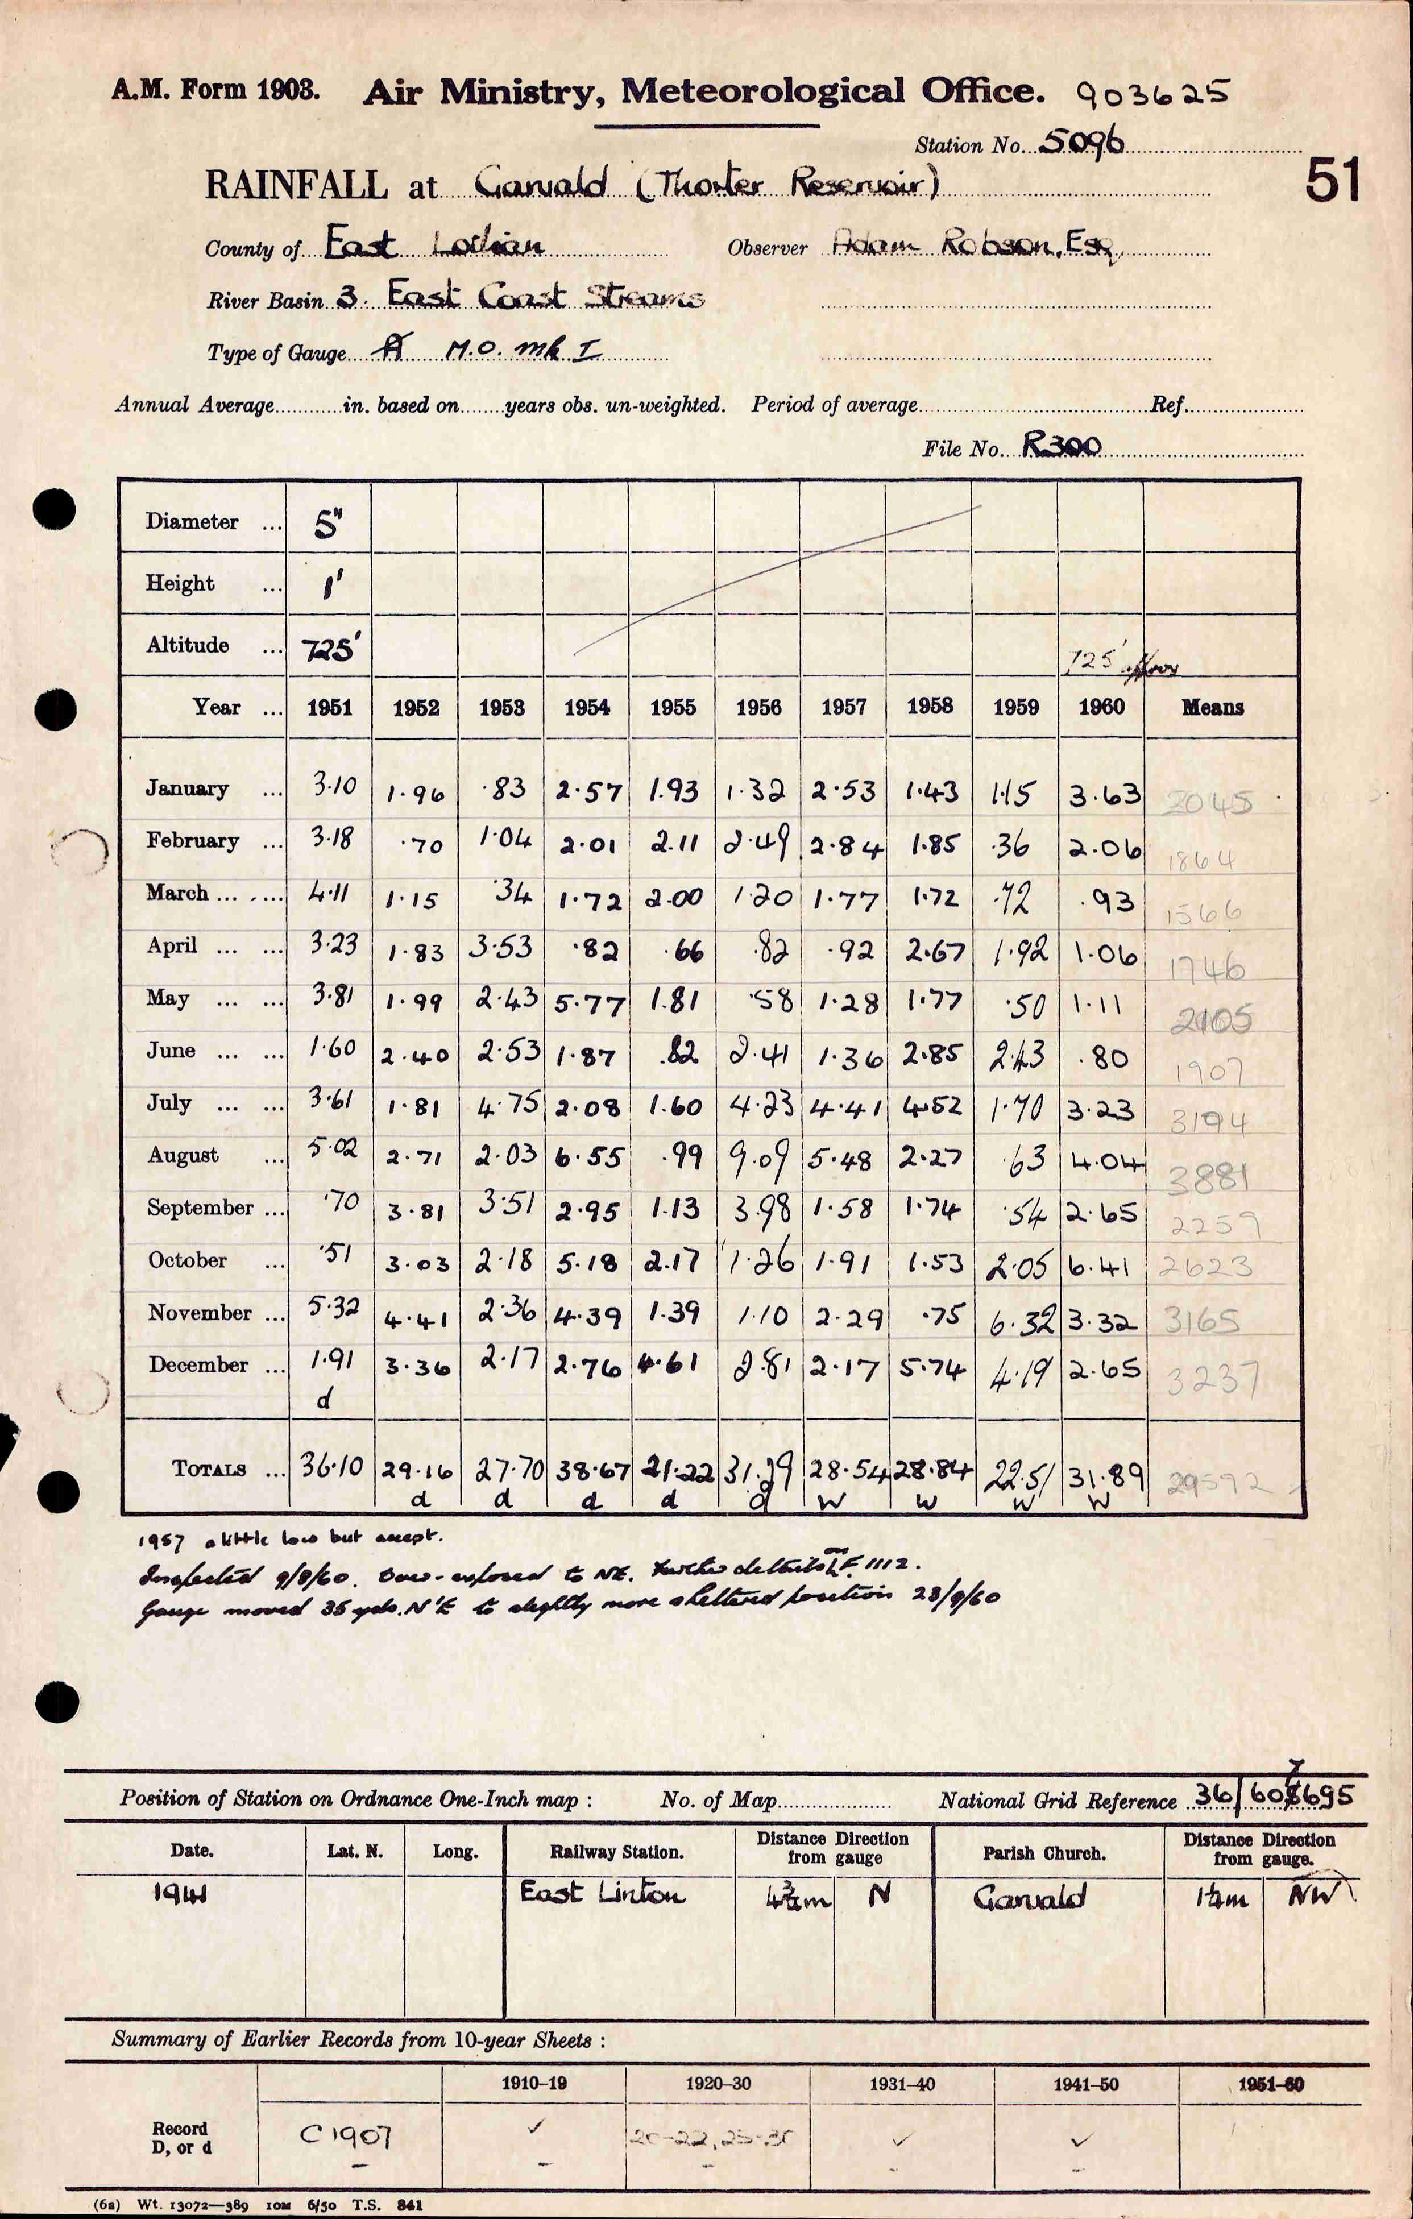 A.M. Form 1903. Air Ministry, Meteorological Office. 903625
Station No. 5096
51
RAINFALL at Garvald (Thorter Reservoir)
County of East Lothian Observer Adam Robson, Esq.
River Basin 3. East Coast Streams
Type of Gauge M.O. Mk I
Annual Average in. based on years obs. un-weighted. Period of average Ref.
File No. R300
Diameter ... 5"
Height ... 1'
Altitude ... 725' 725' approx
Year ... 1951 1952 1953 1954 1955 1956 1957 1958 1959 1960 Means
January ... 3.10 1.96 .83 2.57 1.93 1.32 2.53 1.43 1.15 3.63 2045
February ... 3.18 .70 1.04 2.01 2.11 2.49 2.84 1.85 .36 2.06 1864
March ... ... 4.11 1.15 .34 1.72 2.00 1.20 1.77 1.72 .72 .93 1566
April ... ... 3.23 1.83 3.53 .82 .66 .82 .92 2.67 1.92 1.06 1746
May ... ... 3.81 1.99 2.43 5.77 1.81 .58 1.28 1.77 .50 1.11 2105
June ... ... 1.60 2.40 2.53 1.87 .82 2.41 1.36 2.85 2.43 .80 1907
July ... ... 3.61 1.81 4.75 2.08 1.60 4.23 4.41 4.52 1.70 3.23 3194
August ... 5.02 2.71 2.03 6.55 .99 9.09 5.48 2.27 .63 4.04 3881
September ... .70 3.81 3.51 2.95 1.13 3.98 1.58 1.74 .54 2.65 2259
October ... .51 3.03 2.18 5.18 2.17 1.26 1.91 1.53 2.05 6.41 2623
November ... 5.32 4.41 2.36 4.39 1.39 1.10 2.29 .75 6.32 3.32 3165
December ... 1.91 3.36 2.17 2.76 4.61 2.81 2.17 5.74 4.19 2.65 3237
d
TOTALS ... 36.10 29.16 27.70 38.67 21.22 31.29 28.54 28.84 22.51 31.89 29592
d d d d d W W W W
1957 a little low but accept.
Inspected 9/8/60. Over-exposed to NE. Further details F. 1112.
Gauge moved 35 yds. N'E to slightly more sheltered position 23/9/60
Position of Station on Ordnance One-Inch map : No. of Map National Grid Reference 36/607695
Date. Lat. N. Long. Railway Station. Distance Direction from gauge Parish Church. Distance Direction from gauge.
1941 East Linton 4¾m N Garvald 1¼m NW
Summary of Earlier Records from 10-year Sheets :
1910–19 1920–30 1931–40 1941–50 1951–60
Record D, or d C 1907 ✓ 20-22, 25-30 ✓ ✓
(6s) Wt. 13072—389 10M 6/50 T.S. 841